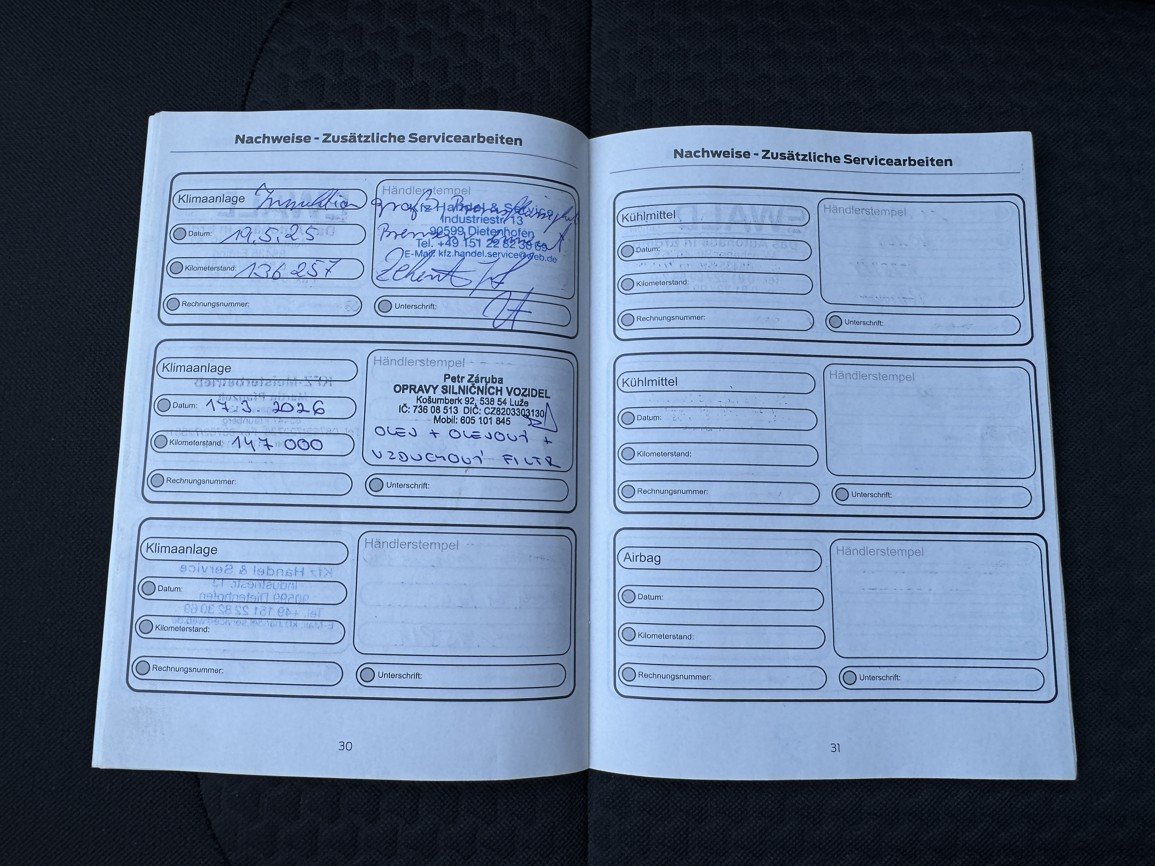 Nachweise - Zusätzliche Servicearbeiten
Klimaanlage Inspektion groß
Datum: 19.5.25
Kilometerstand: 136 257
Rechnungsnummer:
Händlerstempel
Kfz Handel & Service
Industriestr. 13
90599 Dietenhofen
Tel. +49 151 22 82 30 69
E-Mail: kfz.handel.service@web.de
Unterschrift:
Klimaanlage
Datum: 17.3. 2026
Kilometerstand: 147 000
Rechnungsnummer:
Händlerstempel
Petr Záruba
OPRAVY SILNIČNÍCH VOZIDEL
Košumberk 92, 538 54 Luže
IČ: 736 08 513 DIČ: CZ8203303130
Mobil: 605 101 845
OLEJ + OLEJOVÝ +
VZDUCHOVÝ FILTR
Unterschrift:
Klimaanlage
Datum:
Kilometerstand:
Rechnungsnummer:
Händlerstempel
Unterschrift:
30
Nachweise - Zusätzliche Servicearbeiten
Kühlmittel
Datum:
Kilometerstand:
Rechnungsnummer:
Händlerstempel
Unterschrift:
Kühlmittel
Datum:
Kilometerstand:
Rechnungsnummer:
Händlerstempel
Unterschrift:
Airbag
Datum:
Kilometerstand:
Rechnungsnummer:
Händlerstempel
Unterschrift:
31